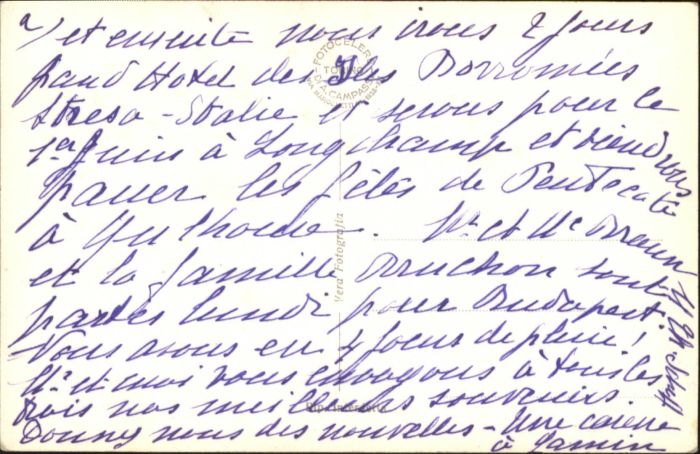 2) et ensuite nous irons 2 jours
grand Hotel des Iles Borromées
Stresa - Italie et serons pour le
1er Juin à Longchamp et viendrons
passer les fêtes de Pentecote
à . Mr et Me Braun
et la famille Bruchon sont
partis lundi pour Budapest.
Nous avons eu 4 jours de pluie!
Mr et moi vous envoyons à tous les
trois nos meilleurs souvenirs.
Donnez nous des nouvelles - Une caresse
à
FOTOCELERE
TORINO
DI A. CAMPASSI
Vera Fotografia